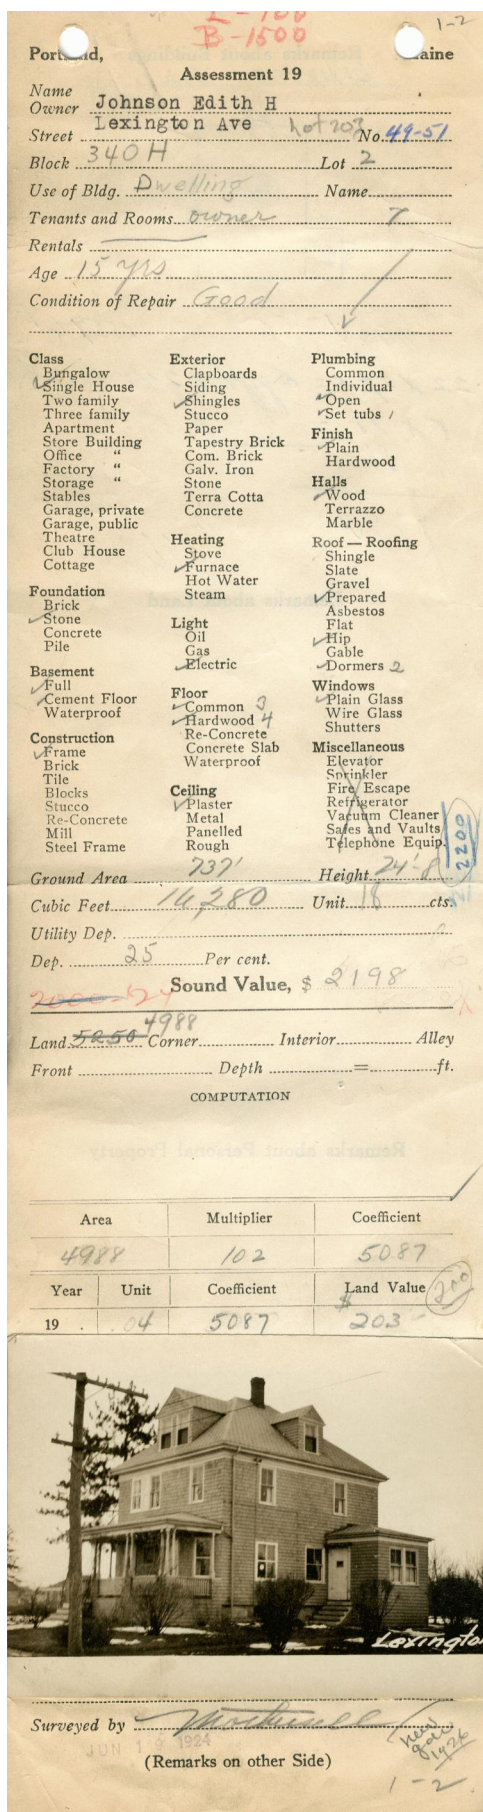 L-100
B-1500
1-2
Portland, Maine
Assessment 19
Name
Owner Johnson Edith H
Street Lexington Ave Lot 203 No. 49-51
Block 340 H Lot 2
Use of Bldg. Dwelling Name
Tenants and Rooms owner 7
Rentals
Age 15 yrs
Condition of Repair Good
Class
✓ Bungalow
Single House
Two family
Three family
Apartment
Store Building
Office "
Factory "
Storage "
Stables
Garage, private
Garage, public
Theatre
Club House
Cottage
Foundation
Brick
✓ Stone
Concrete
Pile
Basement
✓ Full
✓ Cement Floor
Waterproof
Construction
✓ Frame
Brick
Tile
Blocks
Stucco
Re-Concrete
Mill
Steel Frame
Exterior
Clapboards
Siding
✓ Shingles
Stucco
Paper
Tapestry Brick
Com. Brick
Galv. Iron
Stone
Terra Cotta
Concrete
Heating
Stove
✓ Furnace
Hot Water
Steam
Light
Oil
Gas
✓ Electric
Floor
✓ Common 3
✓ Hardwood 4
Re-Concrete
Concrete Slab
Waterproof
Ceiling
✓ Plaster
Metal
Panelled
Rough
Plumbing
Common
Individual
✓ Open
✓ Set tubs 1
Finish
✓ Plain
Hardwood
Halls
✓ Wood
Terrazzo
Marble
Roof — Roofing
Shingle
Slate
Gravel
✓ Prepared
Asbestos
Flat
✓ Hip
Gable
✓ Dormers 2
Windows
✓ Plain Glass
Wire Glass
Shutters
Miscellaneous
Elevator
Sprinkler
Fire Escape
Refrigerator
Vacuum Cleaner
Safes and Vaults
Telephone Equip.
2200
Ground Area 737' Height 24'-8
Cubic Feet 16,280 Unit 18 cts.
Utility Dep.
Dep. 25 Per cent.
Sound Value, $ 2198
2000-'24
4988
Land 5250 Corner Interior Alley
Front Depth = ft.
COMPUTATION
Area Multiplier Coefficient
4988 102 5087
Year Unit Coefficient Land Value 200
19 04 5087 $203
Lexington
Surveyed by
JUN 19 1924
(Remarks on other Side)
new
gar
1926
1-2